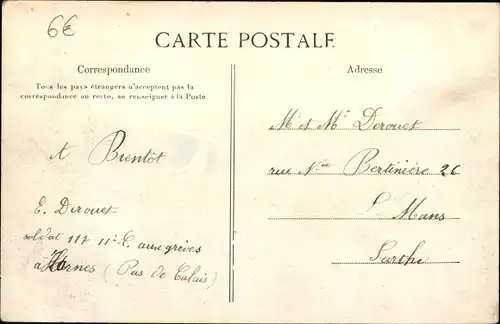 6€
CARTE POSTALE
Correspondance
Tous les pays étrangers n'acceptent pas la
correspondance au recto, se renseigner à la Poste
A Bientôt
E. Derouet
soldat 117 11e C. aux grèves
à Harnes (Pas de Calais)
Adresse
M et Me Derouet
rue Nve Bertinière 26
Le Mans
Sarthe